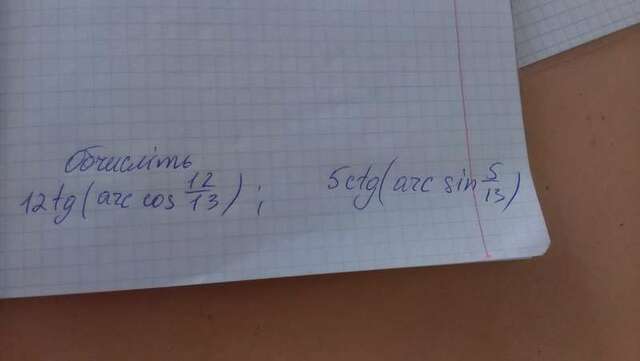 Обчисліть
12tg(arc cos 12/13); 5ctg(arc sin 5/13)